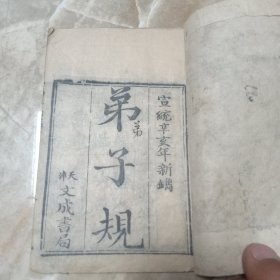 宣統辛亥年新鐫
弟子規
弟
天津
文成書局